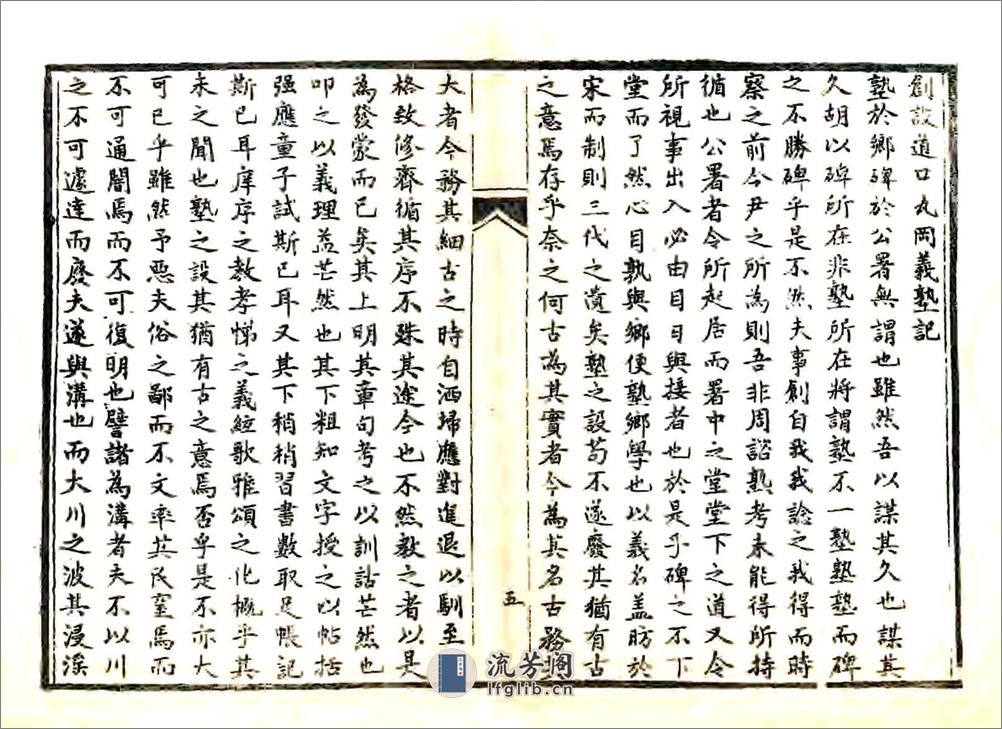 創設道口九岡義塾記
塾於鄉碑於公署無謂也雖然吾以謀其久也謀其
久胡以碑所在非塾所在將謂塾不一塾塾塾而碑
之不勝碑乎是不然夫事創自我我諗之我得而時
察之前令尹之所為則吾非周諮熟考未能得所持
循也公署者令所起居而署中之堂堂下之道又令
所視事出入必由目日與接者也於是乎碑之不下
堂而了然心目孰與鄉便塾鄉學也以義名蓋昉於
宋而制則三代之遺矣塾之設苟不遂廢其猶有古
之意焉存乎奈之何古為其實者今為其名古務其
大者今務其細古之時自洒埽應對進退以馴至
格致修齊循其序不殊其途今也不然教之者以是
為發蒙而已矣其上明其章句考之以訓詁芒然也
叩之以義理益芒然也其下粗知文字授之以帖括
强應童子試斯已耳又其下稍稍習書數取足帳記
斯已耳庠序之教孝悌之義絃歌雅頌之化概乎其
未之聞也塾之設其猶有古之意焉否乎是不亦大
可已乎雖然予惡夫俗之鄙而不文率其民室焉而
不可通闇焉而不可復明也譬諸為溝者夫不以川
之不可遽達而廢夫遂與溝也而大川之波其浸滛
五
流芳阁
lfglib.cn